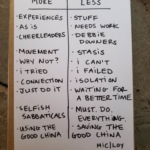 MORE
LESS
• EXPERIENCES
• AS IS
• CHEERLEADERS
• MOVEMENT
• WHY NOT?
• I TRIED
• CONNECTION
• JUST DO IT
• SELFISH
SABBATICALS
• USING THE
GOOD CHINA
• STUFF
• NEEDS WORK
• DEBBIE
DOWNERS
• STASIS
• I CAN'T
• I FAILED
• ISOLATION
• WAITING FOR
A BETTER TIME
• MUST. DO.
EVERYTHING.
• SAVING THE
GOOD CHINA